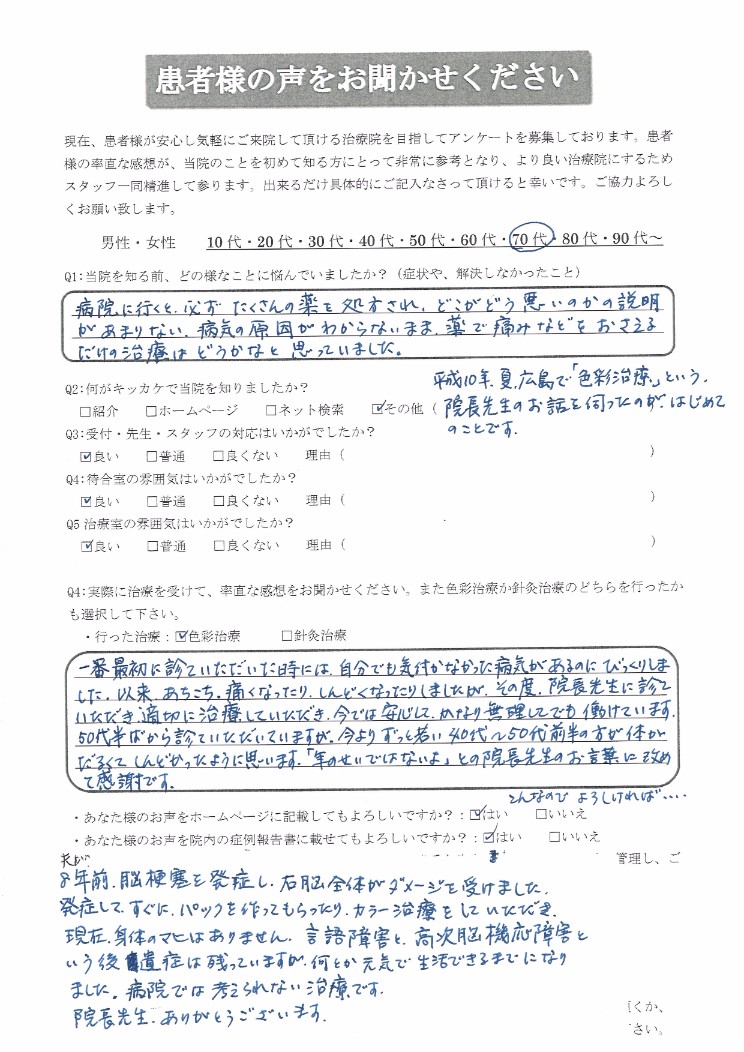 患者様の声をお聞かせください
現在、患者様が安心し気軽にご来院して頂ける治療院を目指してアンケートを募集しております。患者
様の率直な感想が、当院のことを初めて知る方にとって非常に参考となり、より良い治療院にするため
スタッフ一同精進して参ります。出来るだけ具体的にご記入なさって頂けると幸いです。ご協力よろし
くお願い致します。
男性・女性 10代・20代・30代・40代・50代・60代・70代・80代・90代～
Q1:当院を知る前、どの様なことに悩んでいましたか？（症状や、解決しなかったこと）
病院に行くと、必ず たくさんの薬を処方され、どこがどう悪いのかの説明
があまりない、病気の原因がわからないまま、薬で痛みなどをおさえる
だけの治療はどうかなと思っていました。
Q2:何がキッカケで当院を知りましたか？
平成10年、夏、広島で「色彩治療」という、
□紹介 □ホームページ □ネット検索 ☑その他（ 院長先生のお話を伺ったのが、はじめて
のことです。
Q3:受付・先生・スタッフの対応はいかがでしたか？
☑良い □普通 □良くない 理由（ ）
Q4:待合室の雰囲気はいかがでしたか？
☑良い □普通 □良くない 理由（ ）
Q5 治療室の雰囲気はいかがでしたか？
☑良い □普通 □良くない 理由（ ）
Q4:実際に治療を受けて、率直な感想をお聞かせください。また色彩治療か針灸治療のどちらを行ったか
も選択して下さい。
・行った治療：☑色彩治療 □針灸治療
一番最初に診ていただいた時には、自分でも気付かなかった病気があるのにびっくりしま
した。以来、あちこち、痛くなったり、しんどくなったりしましたが、その度、院長先生に診て
いただき適切に治療していただき、今では安心して、かなり無理してでも働けています。
50代半ばから診ていただいていますが、今よりずっと若い40代～50代前半の方が体が
だるくてしんどかったように思います。「年のせいではないよ」との院長先生のお言葉に改め
て感謝です。
こんなので よろしければ‥‥
・あなた様のお声をホームページに記載してもよろしいですか？：☑はい □いいえ
・あなた様のお声を院内の症例報告書に載せてもよろしいですか？：☑はい □いいえ
夫が
管理し、ご
8年前、脳梗塞を発症し、右脳全体がダメージを受けました。
発症して、すぐに、パックを作ってもらったり、カラー治療をしていただき、
現在、身体のマヒはありません。言語障害と、高次脳機応障害と
いう後遺症は残っていますが、何とか元気で生活できるまでになり
ました。病院では考えられない治療です。
院長先生、ありがとうございます。
くか、
さい。